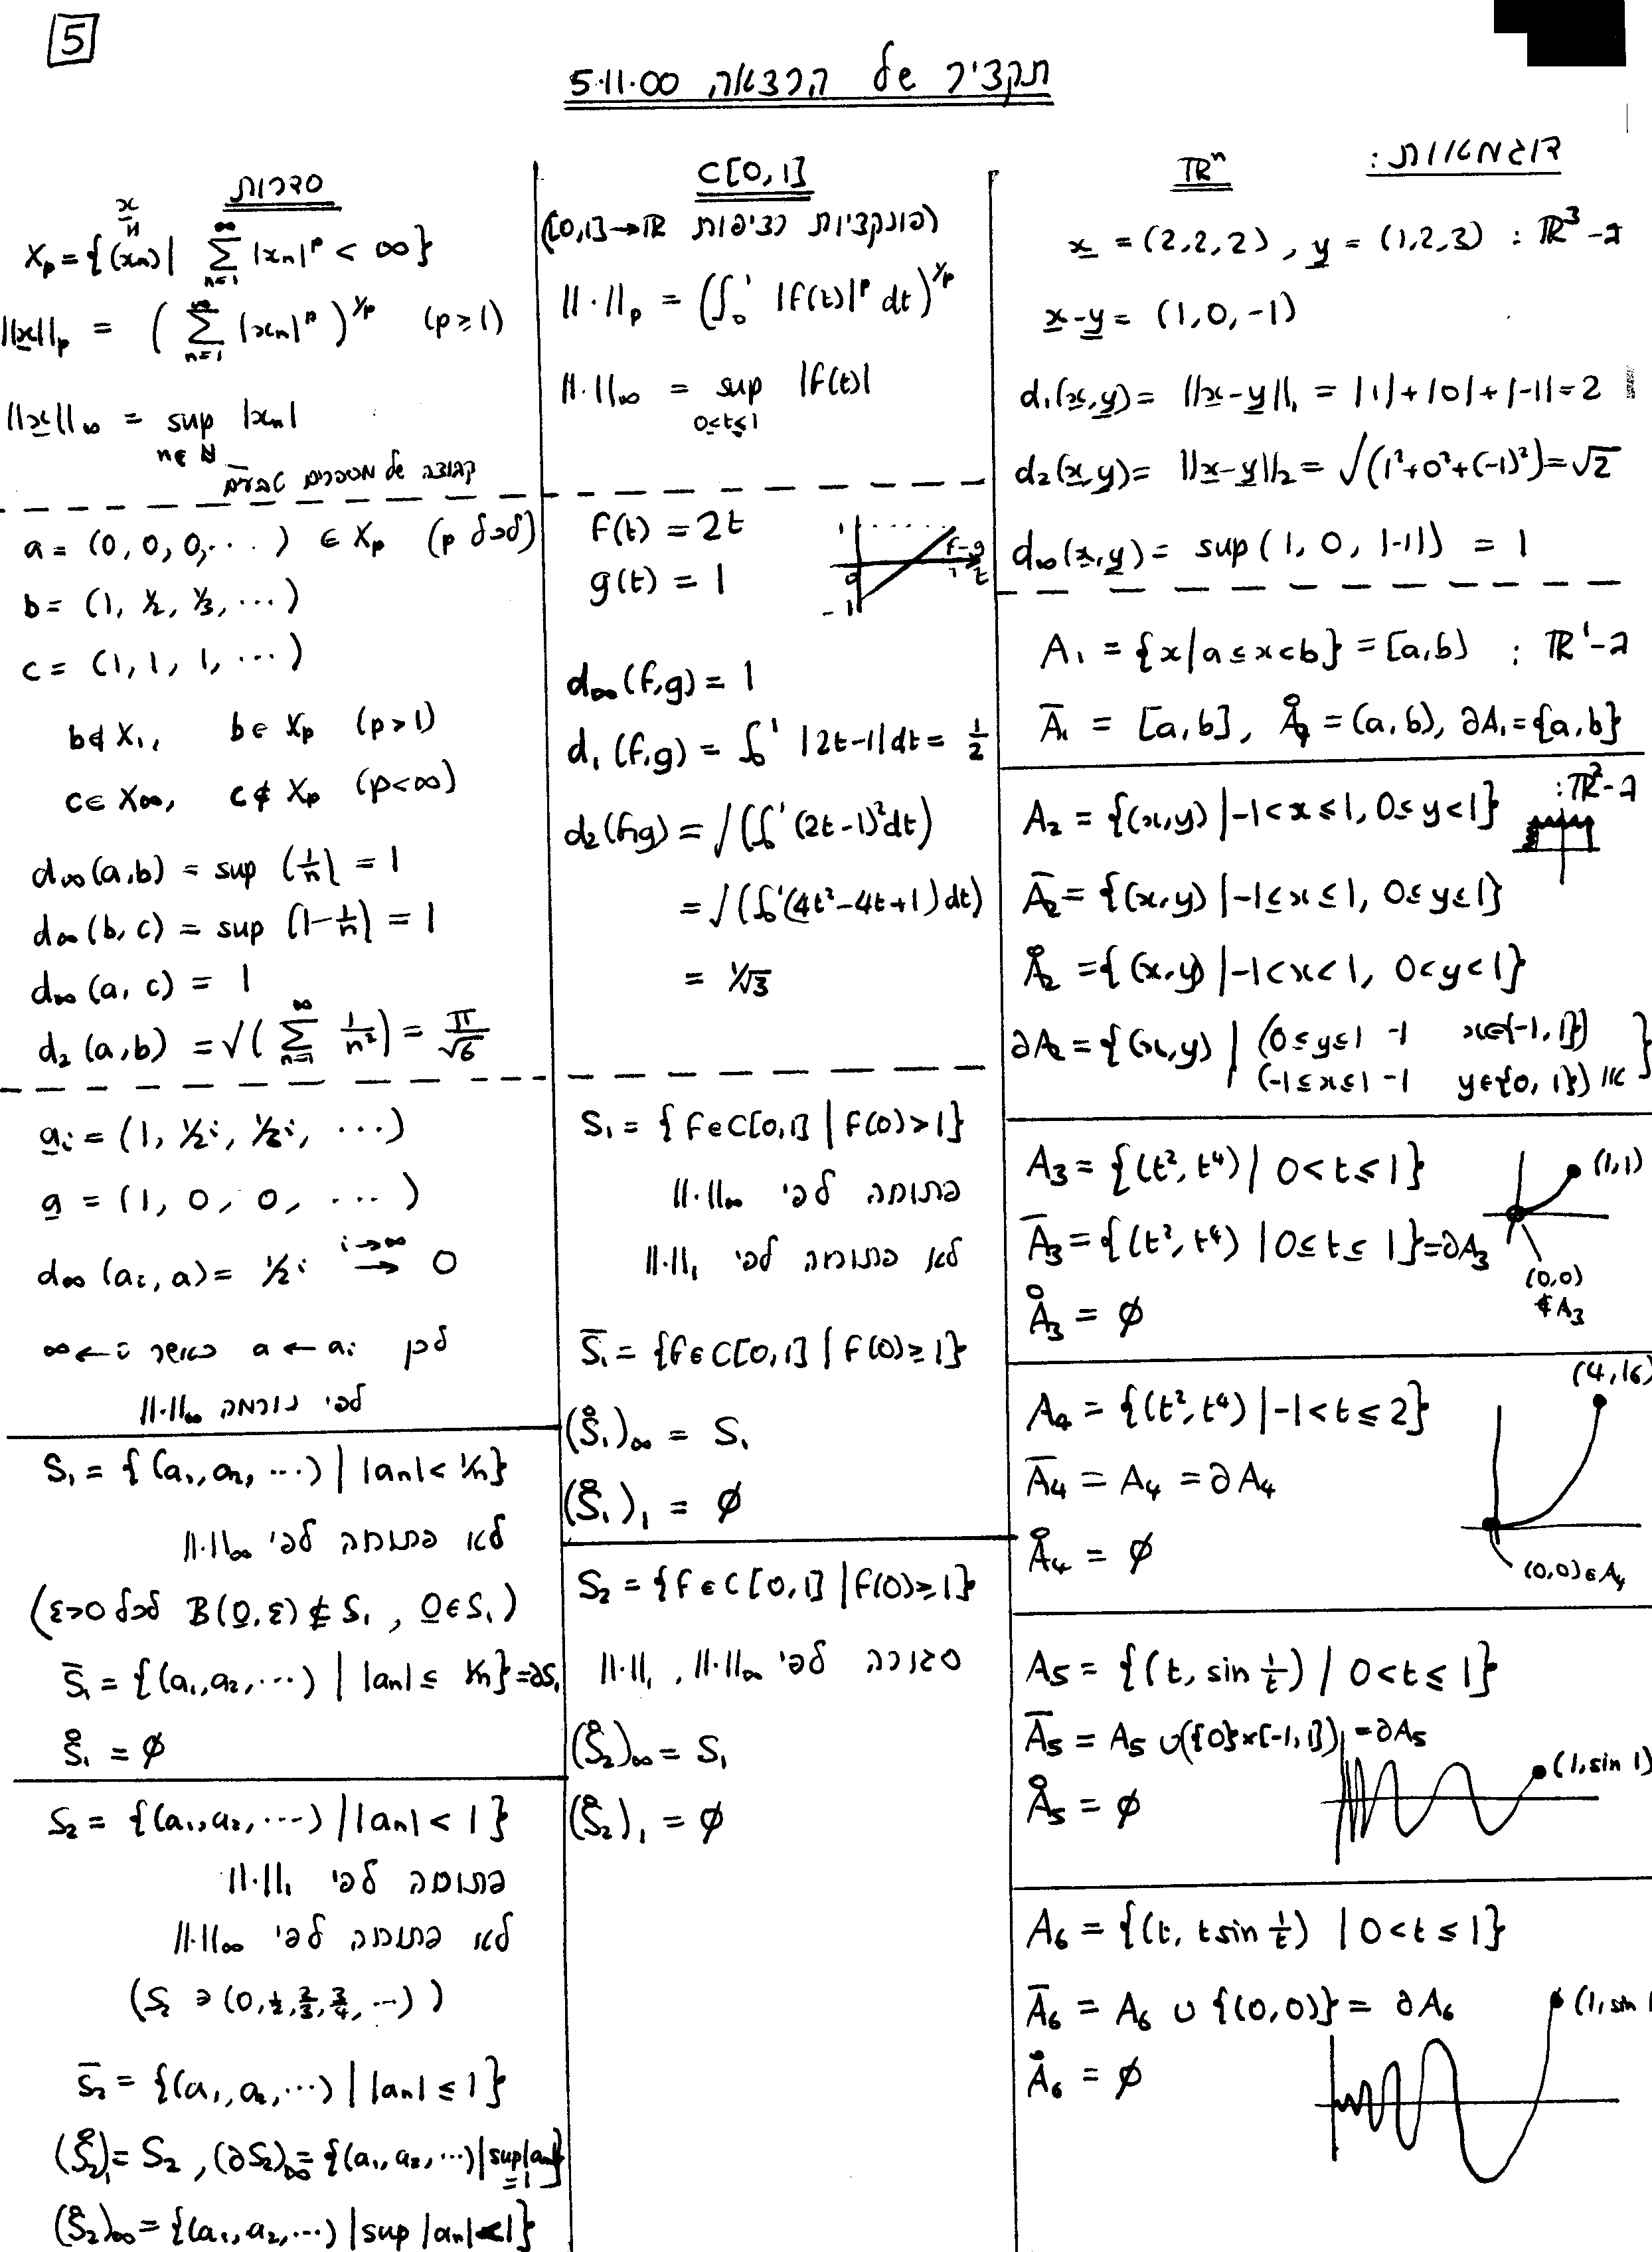 5
תקציר של הרצאה 5.11.00
דוגמאות:
ℝⁿ
x = (2,2,2), y = (1,2,3) : ℝ³-ב
x-y = (1,0,-1)
d₁(x,y) = ||x-y||₁ = |1|+|0|+|-1| = 2
d₂(x,y) = ||x-y||₂ = √(1²+0²+(-1)²) = √2
d∞(x,y) = sup(1, 0, |-1|) = 1
A₁ = {x | a ≤ x < b} = [a,b) : ℝ¹-ב
A̅₁ = [a,b], Å₁ = (a,b), ∂A₁ = {a,b}
:ℝ²-ב
A₂ = {(x,y) | -1 < x ≤ 1, 0 ≤ y < 1}
A̅₂ = {(x,y) | -1 ≤ x ≤ 1, 0 ≤ y ≤ 1}
Å₂ = {(x,y) | -1 < x < 1, 0 < y < 1}
∂A₂ = {(x,y) | (0 ≤ y ≤ 1 -ו x∈{-1,1})
(-1 ≤ x ≤ 1 -ו y∈{0,1}) או }
A₃ = {(t², t⁴) | 0 < t ≤ 1}
(1,1)
A̅₃ = {(t², t⁴) | 0 ≤ t ≤ 1} = ∂A₃
(0,0)
∉ A₃
Å₃ = ∅
(4,16)
A₄ = {(t², t⁴) | -1 < t ≤ 2}
A̅₄ = A₄ = ∂A₄
Å₄ = ∅
(0,0) ∈ A₄
A₅ = {(t, sin 1/t) | 0 < t ≤ 1}
A̅₅ = A₅ ∪ ({0}×[-1,1]) = ∂A₅
(1, sin 1)
Å₅ = ∅
A₆ = {(t, t sin 1/t) | 0 < t ≤ 1}
A̅₆ = A₆ ∪ {(0,0)} = ∂A₆
(1, sin 1
Å₆ = ∅
C[0,1]
(פונקציות רציפות [0,1]→ℝ)
||·||ₚ = (∫₀¹ |f(t)|ᵖ dt)^{1/p}
||·||∞ = sup |f(t)|
0≤t≤1
f(t) = 2t
g(t) = 1
1
0
-1
f-g
1
t
d∞(f,g) = 1
d₁(f,g) = ∫₀¹ |2t-1| dt = 1/2
d₂(f,g) = √(∫₀¹ (2t-1)² dt)
= √(∫₀¹ (4t²-4t+1) dt)
= 1/√3
S₁ = {f∈C[0,1] | f(0) > 1}
פתוחה לפי ||·||∞
לא פתוחה לפי ||·||₁
S̅₁ = {f∈C[0,1] | f(0) ≥ 1}
(S̊₁)∞ = S₁
(S̊₁)₁ = ∅
S₂ = {f∈C[0,1] | f(0) ≥ 1}
סגורה לפי ||·||∞, ||·||₁
(S̊₂)∞ = S₁
(S̊₂)₁ = ∅
סדרות
x
Xₚ = {(xₙ) | ∑_{n=1}^∞ |xₙ|ᵖ < ∞}
||x||ₚ = (∑_{n=1}^∞ |xₙ|ᵖ)^{1/p} (p ≥ 1)
||x||∞ = sup |xₙ|
n∈ℕ
קבוצה של מספרים טבעיים
a = (0, 0, 0, ...) ∈ Xₚ (לכל p)
b = (1, 1/2, 1/3, ...)
c = (1, 1, 1, ...)
b∉X₁, b∈Xₚ (p > 1)
c∈X∞, c∉Xₚ (p < ∞)
d∞(a,b) = sup (1/n) = 1
d∞(b,c) = sup (1-1/n) = 1
d∞(a,c) = 1
d₂(a,b) = √(∑_{n=1}^∞ 1/n²) = π/√6
aᵢ = (1, 1/2i, 1/2i, ...)
a = (1, 0, 0, ...)
d∞(aᵢ, a) = 1/2i →^{i→∞} 0
לכן aᵢ → a כאשר i → ∞
לפי נורמה ||·||∞
S₁ = {(a₁, a₂, ...) | |aₙ| < 1/n}
לא פתוחה לפי ||·||∞
(0∈S₁, B(0,ε) ⊄ S₁ לכל ε>0)
S̅₁ = {(a₁, a₂, ...) | |aₙ| ≤ 1/n} = ∂S₁
S̊₁ = ∅
S₂ = {(a₁, a₂, ...) | |aₙ| < 1}
פתוחה לפי ||·||₁
לא פתוחה לפי ||·||∞
(S₂ ∋ (0, 1/2, 2/3, 3/4, ...))
S̅₂ = {(a₁, a₂, ...) | |aₙ| ≤ 1}
(S̊₂)₁ = S₂, (∂S₂)∞ = {(a₁, a₂, ...) | sup|aₙ| = 1}
(S̊₂)∞ = {(a₁, a₂, ...) | sup |aₙ| < 1}